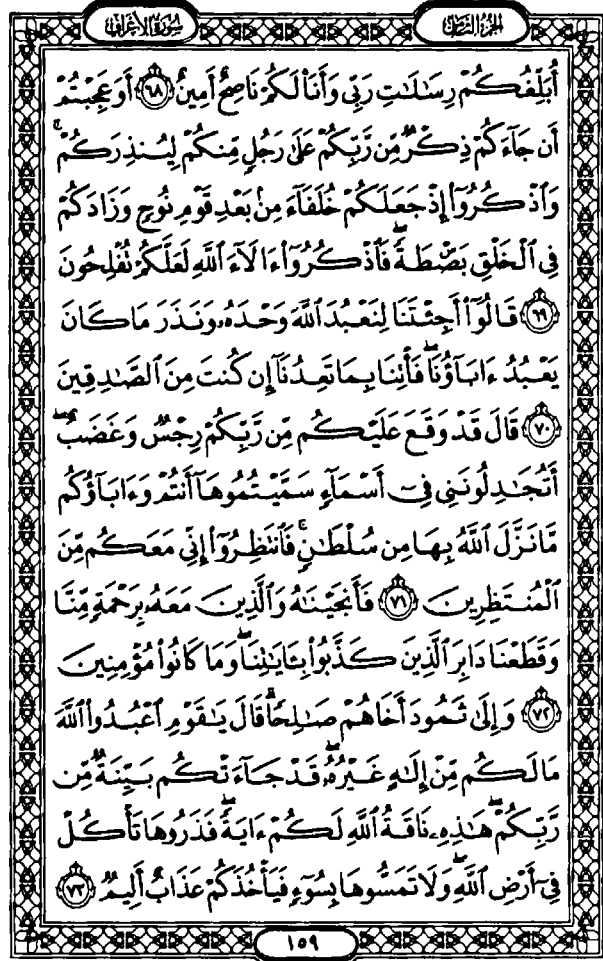 سورة الأعراف
الجزء الثامن
أُبَلِّغُكُمْ رِسَٰلَٰتِ رَبِّى وَأَنَا۠ لَكُمْ نَاصِحٌ أَمِينٌ ٦٨ أَوَعَجِبْتُمْ
أَن جَآءَكُمْ ذِكْرٌ مِّن رَّبِّكُمْ عَلَىٰ رَجُلٍ مِّنكُمْ لِيُنذِرَكُمْ ۚ
وَٱذْكُرُوٓا۟ إِذْ جَعَلَكُمْ خُلَفَآءَ مِنۢ بَعْدِ قَوْمِ نُوحٍ وَزَادَكُمْ
فِى ٱلْخَلْقِ بَصْۜطَةً ۖ فَٱذْكُرُوٓا۟ ءَالَآءَ ٱللَّهِ لَعَلَّكُمْ تُفْلِحُونَ
٦٩ قَالُوٓا۟ أَجِئْتَنَا لِنَعْبُدَ ٱللَّهَ وَحْدَهُۥ وَنَذَرَ مَا كَانَ
يَعْبُدُ ءَابَآؤُنَا ۖ فَأْتِنَا بِمَا تَعِدُنَآ إِن كُنتَ مِنَ ٱلصَّٰدِقِينَ
٧٠ قَالَ قَدْ وَقَعَ عَلَيْكُم مِّن رَّبِّكُمْ رِجْسٌ وَغَضَبٌ ۖ
أَتُجَٰدِلُونَنِى فِىٓ أَسْمَآءٍ سَمَّيْتُمُوهَآ أَنتُمْ وَءَابَآؤُكُم
مَّا نَزَّلَ ٱللَّهُ بِهَا مِن سُلْطَٰنٍ ۚ فَٱنتَظِرُوٓا۟ إِنِّى مَعَكُم مِّنَ
ٱلْمُنتَظِرِينَ ٧١ فَأَنجَيْنَٰهُ وَٱلَّذِينَ مَعَهُۥ بِرَحْمَةٍ مِّنَّا
وَقَطَعْنَا دَابِرَ ٱلَّذِينَ كَذَّبُوا۟ بِـَٔايَٰتِنَا ۖ وَمَا كَانُوا۟ مُؤْمِنِينَ
٧٢ وَإِلَىٰ ثَمُودَ أَخَاهُمْ صَٰلِحًا ۗ قَالَ يَٰقَوْمِ ٱعْبُدُوا۟ ٱللَّهَ
مَا لَكُم مِّنْ إِلَٰهٍ غَيْرُهُۥ ۖ قَدْ جَآءَتْكُم بَيِّنَةٌ مِّن
رَّبِّكُمْ ۖ هَٰذِهِۦ نَاقَةُ ٱللَّهِ لَكُمْ ءَايَةً ۖ فَذَرُوهَا تَأْكُلْ
فِىٓ أَرْضِ ٱللَّهِ ۖ وَلَا تَمَسُّوهَا بِسُوٓءٍ فَيَأْخُذَكُمْ عَذَابٌ أَلِيمٌ ٧٣
١٥٩